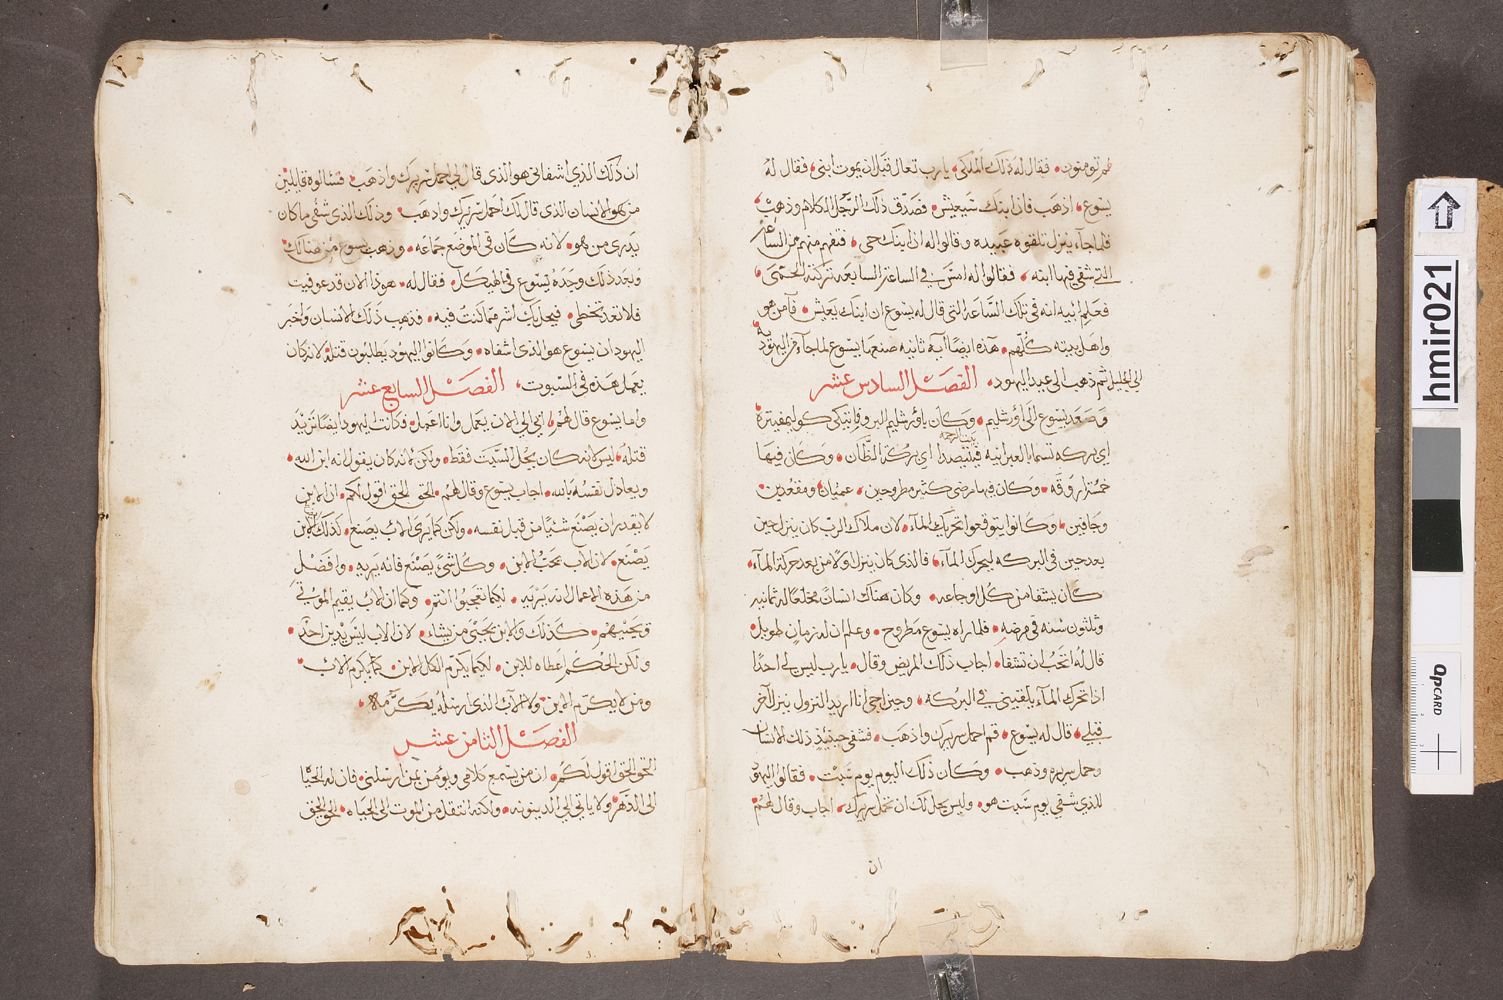 لم تومنون فقال له ذلك الملكى يارب تعال قبل ان يموت ابنى فقال له
يسوع اذهب فان ابنك سيعيش فصدق ذلك الرجل الكلام وذهب
فلما جاء ينزل تلقوه عبيده وقالوا له ان ابنك حى فتفهم منهم من الساعه
التى شفى فيها ابنه فقالوا له امس فى الساعه السابعه تركته الحمى
فعلم ابيه انه فى تلك الساعه التى قال له يسوع ان ابنك يعيش فآمن هو
واهل بيته كلهم هذه ايضا آيه ثانيه صنعها يسوع لما جاء من اليهوديه
الى الجليل ثم ذهب الى عيد اليهود الفصل السادس عشر
وصعد يسوع الى اورشليم وكان باورشليم
اى بركه تسما بالعبرانيه اى بركة الضان وكان فيها
خمسة اروقه وكان فيها مرضى كثيره طروحين عميان ومقعدين
وجافين وكانوا يتوقعوا تحريك المآء لان ملاك الرب كان ينزل حين
بعد حين فى البركه ليحرك المآء فالذى كان ينزل اولا من بعد حركة المآء
كان يشفا من كل اوجاعه وكان هناك انسان مخلعا له ثمانيه
وثلثون سنه فى مرضه فلما راه يسوع مطروح وعلم ان له زمان طويل
قال له اتحب ان تشفا اجاب ذلك المريض وقال يارب ليس لى احدا
اذا تحرك المآء يلقينى فى البركه وحين اجى انا اريد النزول ينزل آخر
قبلى قال له يسوع قم احمل سريرك واذهب فشفى حينئذ ذلك الانسان
وحمل سريره وذهب وكان ذلك اليوم يوم سبت فقالوا اليهود
للذى شفى يوم سبت هو وليس يحل لك ان تحمل سريرك اجاب وقال لهم
ان
ان ذلك الذى اشفانى هو الذى قال لى احمل سريرك واذهب فسالوه قايلين
من هو الانسان الذى قال لك احمل سريرك واذهب وذلك الذى شفى ما كان
يدرى من هو لانه كان فى الموضع جماعه وذهب يسوع من هنالك
وبعد ذلك وجده يسوع فى الهيكل فقال له هوذا الان قد عوفيت
فلا تعد تخطى فيحل بك اشر مما كنت فيه فذهب ذلك الانسان واخبر
اليهود ان يسوع هو الذى اشفاه وكانوا اليهود يطلبون قتله لانه كان
يعمل هذه فى السبوت الفصل السابع عشر
واما يسوع قال لهم ابى الى الان يعمل وانا اعمل فكانت اليهود ايضا تريد
قتله ليس لانه كان يحل السبت فقط ولكن لانه كان يقول انه ابن الله
ويعادل نفسه بالله اجاب يسوع وقال لهم الحق الحق اقول لكم ان الابن
لا يقدر ان يصنع شيئا من قبل نفسه ولكن كما يرى الاب يصنع كذلك الابن
يصنع لان الاب يحب الابن وكل شى يصنع فانه يريه وافضل
من هذه الاعمال انه يريه لكيما تعجبوا انتم وكما ان الاب يقيم الموتى
ويحييهم كذلك والابن يحيى من يشاء لان الاب ليس يدين احد
ولكن الحكم اعطاه للابن لكيما يكرم الكل الابن كما يكرم الاب
ومن لا يكرم الابن ولا الآب الذى ارسله يكرمه
الفصل الثامن عشر
الحق الحق اقول لكم ان من يسمع كلامى ويومن بمن ارسلنى فان له الحياه
الى الدهر ولا ياتى الى الدينونه ولكنه انتقل من الموت الى الحياه الحق الحق